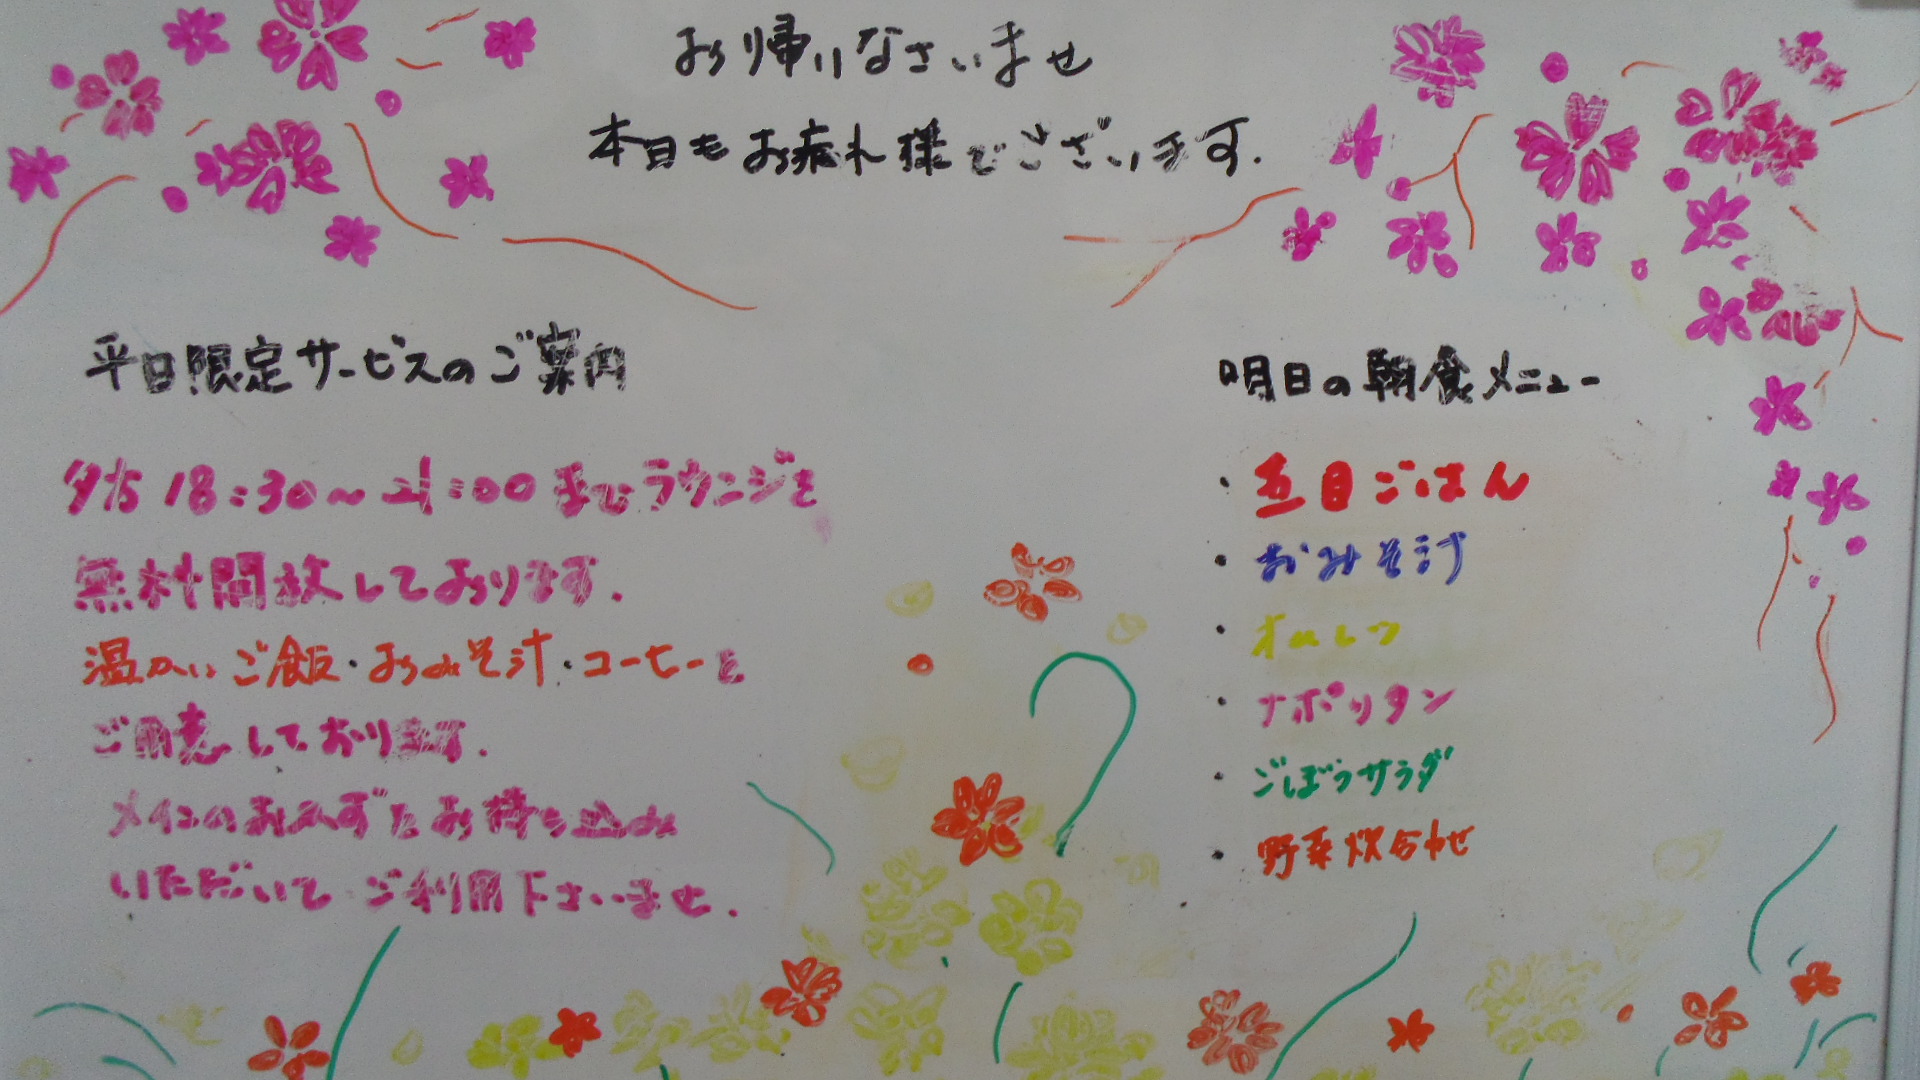 お帰りなさいませ
本日もお疲れ様でございます.
平日限定サービスのご案内
夕方 18:30～21:00までラウンジを
無料開放しております.
温かいご飯・おみそ汁・コーヒーを
ご用意しております.
メインのおかずをお持ち込み
いただいて ご利用下さいませ.
明日の朝食メニュー
・五目ごはん
・おみそ汁
・オムレツ
・ナポリタン
・ごぼうサラダ
・野菜炊合わせ